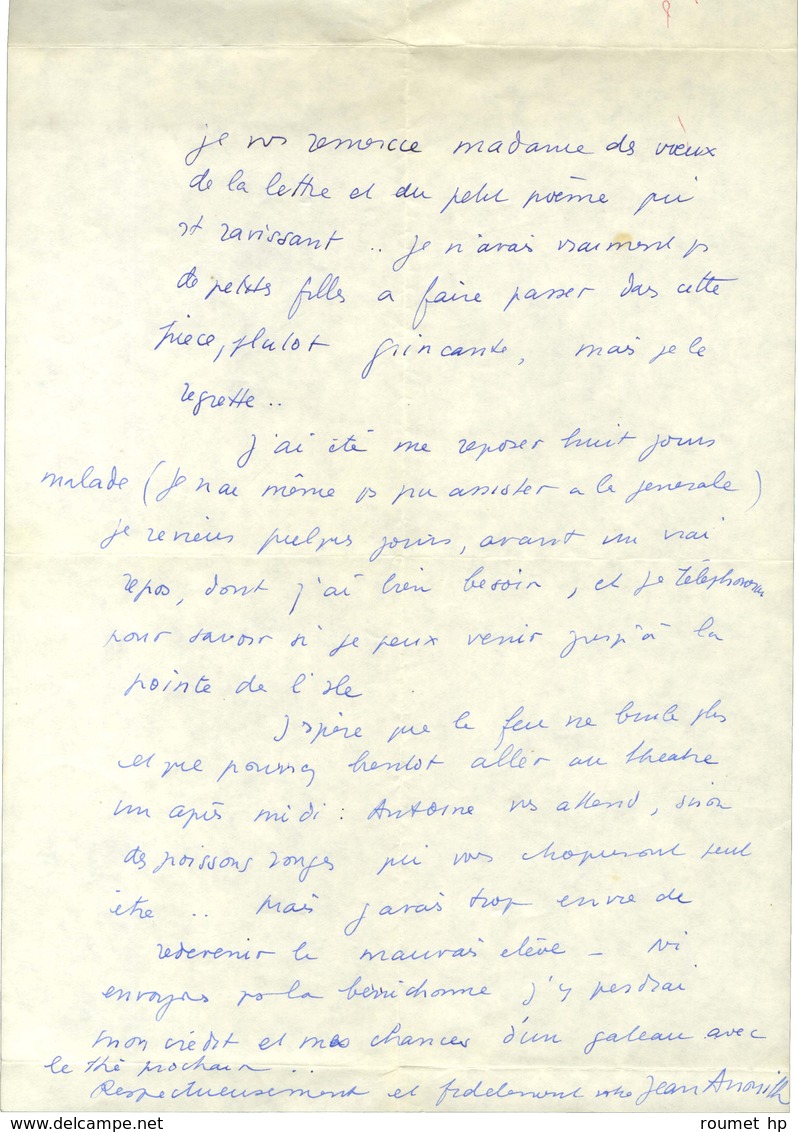 je vs remercie madame des vœux
de la lettre et du petit poème qui
st ravissant .. Je n'avais vraiment ps
de petites filles a faire passer dans cette
pièce, plutot grincante, mais je le
regrette ..
J'ai été me reposer huit jours
malade (je n'ai même ps pu assister a la generale)
je reviens quelques jours, avant un vrai
repos, dont j'ai bien besoin, et je téléphonerai
pour savoir si je peux venir jusqu'à la
pointe de l'ile
J'espère que le feu ne brule plus
et que pourrez bientot aller au theatre
un après midi : Antoine vs attend, sinon
des poissons rouges qui vous choqueront peut
être .. Mais j'avais trop envie de
redevenir le mauvais elève –
envoyons la berrichonne j'y perdrai
mon crédit et mes chances d'un gateau avec
le thé prochain ..
Respectueusement et fidelement votre Jean Anouilh
roumet hp